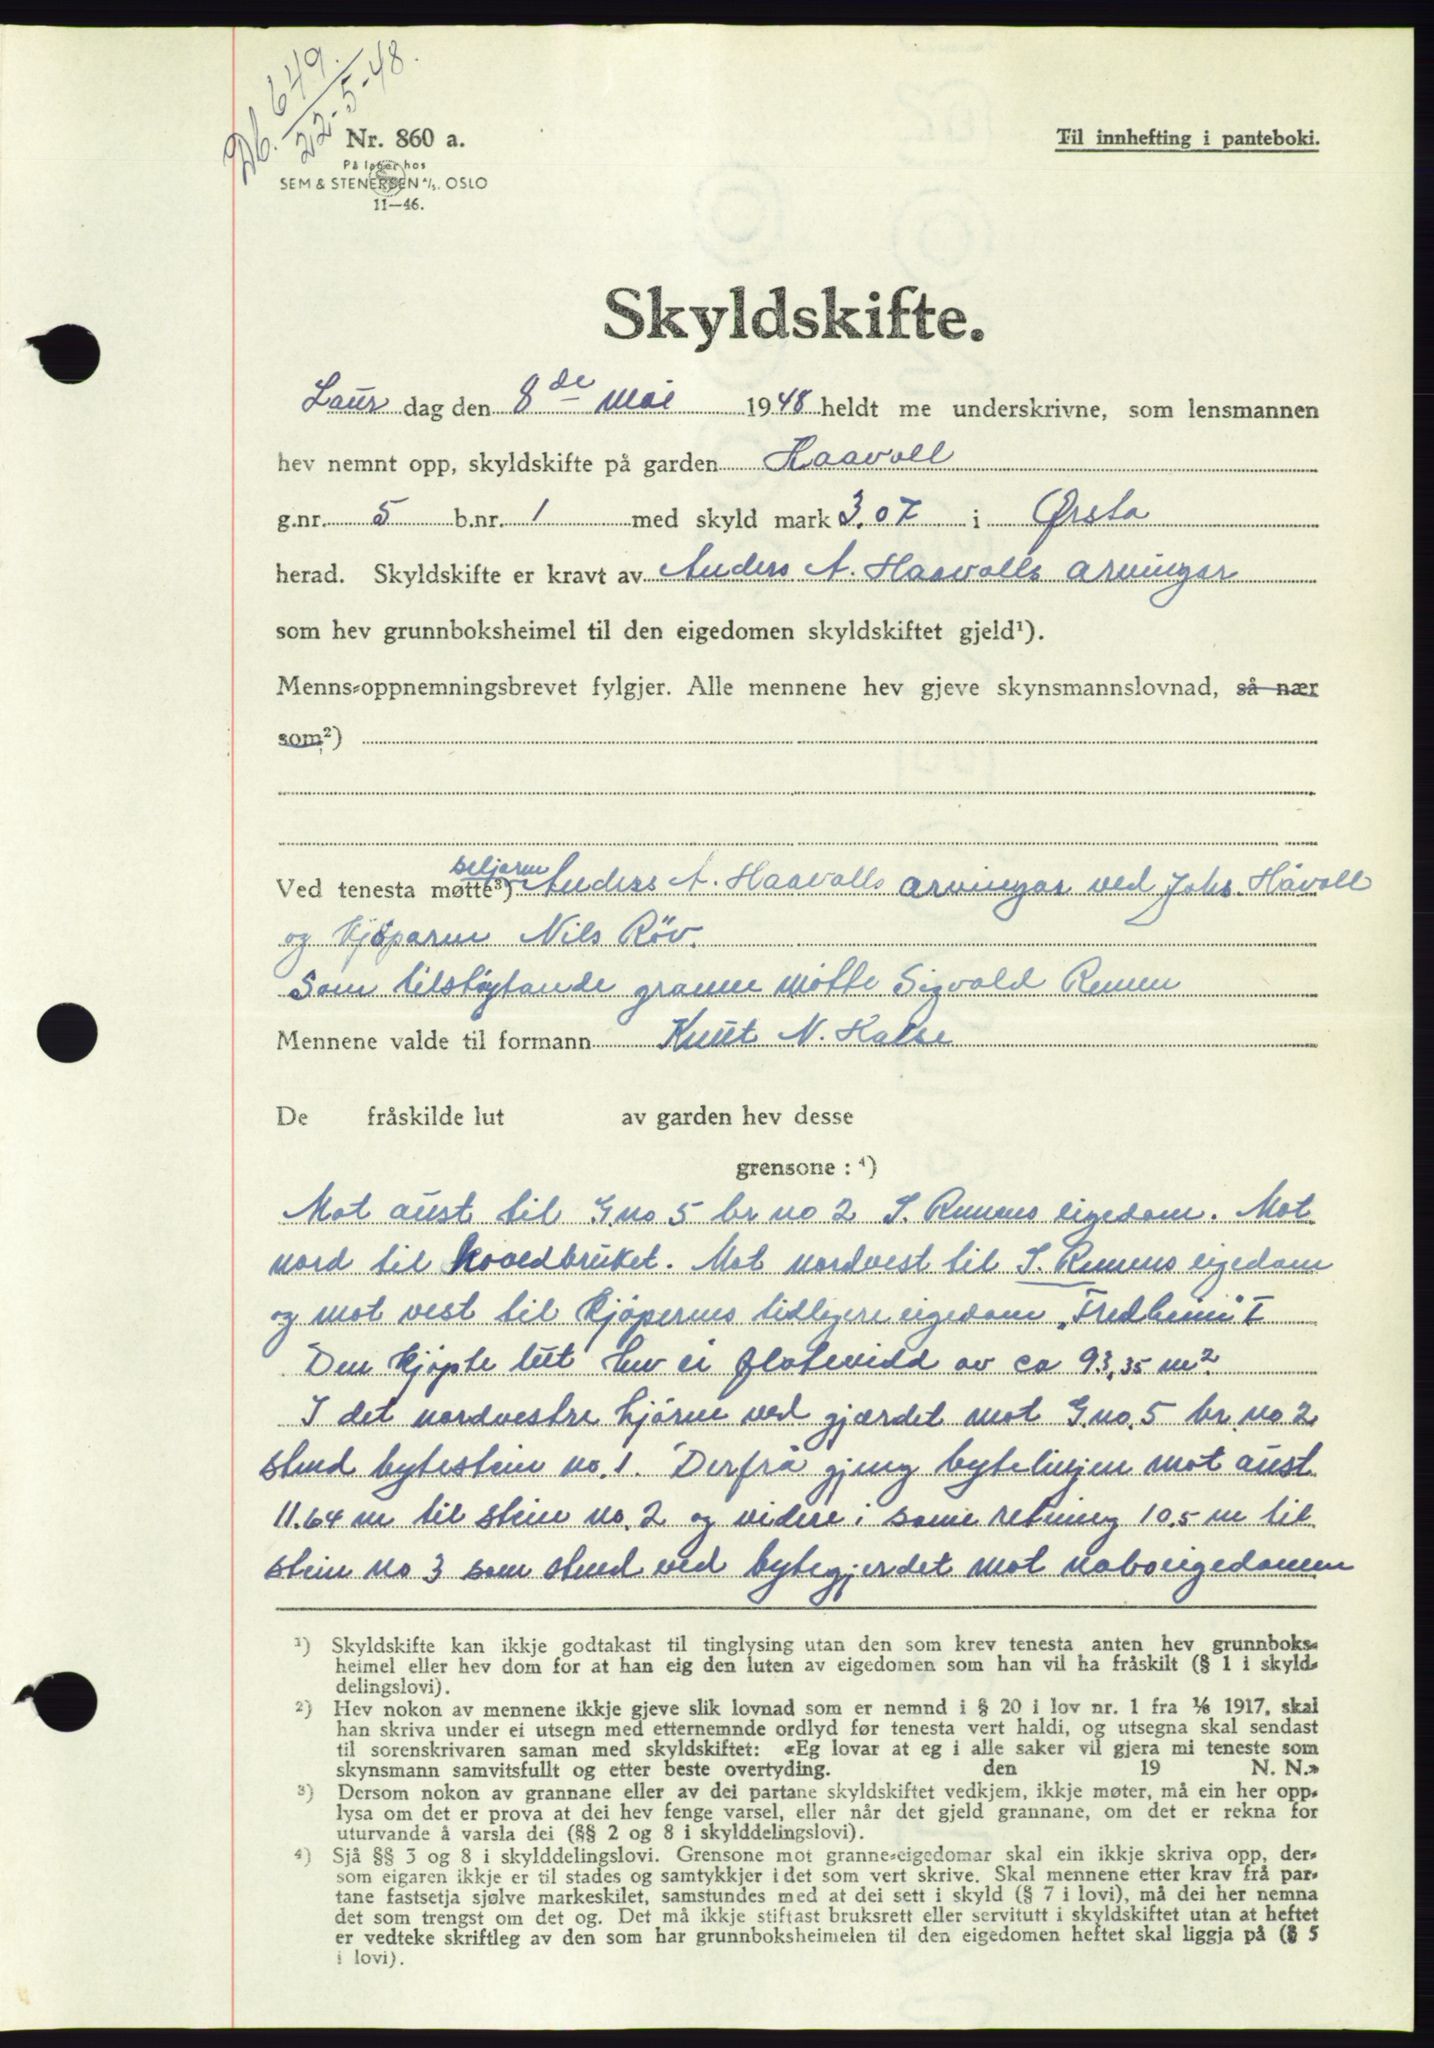 Db. 649.
22-5-48.
Nr. 860 a.
På lager hos
SEM & STENERSEN A/S. OSLO
11—46.
Til innhefting i panteboki.
Skyldskifte.
Laur dag den 8de mai 1948 heldt me underskrivne, som lensmannen
hev nemnt opp, skyldskifte på garden Haavoll
g.nr. 5 b.nr. 1 med skyld mark 3.07 i Ørsta
herad. Skyldskifte er kravt av Anders A. Haavolls arvingar
som hev grunnboksheimel til den eigedomen skyldskiftet gjeld¹).
Menns-oppnemningsbrevet fylgjer. Alle mennene hev gjeve skynsmannslovnad, så nær
som²)
seljarne
Ved tenesta møtte³) Anders A. Haavolls arvingar ved Johs. Håvoll
og kjöparen Nils Röv.
Som tilstøytande granne møtte Sigvald Remen
Mennene valde til formann Knut N. Halse
De fråskilde lut av garden hev desse
grensone : ⁴)
Mot aust til G no 5 br no 2 S. Remens eigedom. Mot
nord til hovedbruket. Mot nordvest til S. Remens eigedom
og mot vest til kjöperens tidligere eigedom „Fredheim" I
Den kjøpte lut hev ei flatevidd av ca 93,35 m²
I det nordvestre hjörne ved gjærdet mot G no. 5 br. no 2
stend bytestein no. 1. Derfrå gjeng bytelinjen mot aust
11.64 m til stein no. 2 og videre i same retning 10.5 m til
stein no 3 som stend ved bytegjerdet mot naboeigedomen
¹) Skyldskifte kan ikkje godtakast til tinglysing utan den som krev tenesta anten hev grunnboks-
heimel eller hev dom for at han eig den luten av eigedomen som han vil ha fråskilt (§ 1 i skyld-
delingslovi).
²) Hev nokon av mennene ikkje gjeve slik lovnad som er nemnd i § 20 i lov nr. 1 fra 1/6 1917, skal
han skriva under ei utsegn med etternemnde ordlyd før tenesta vert haldi, og utsegna skal sendast
til sorenskrivaren saman med skyldskiftet: «Eg lovar at eg i alle saker vil gjera mi teneste som
skynsmann samvitsfullt og etter beste overtyding. den 19 N. N.»
³) Dersom nokon av grannane eller av dei partane skyldskiftet vedkjem, ikkje møter, må ein her opp-
lysa om det er prova at dei hev fenge varsel, eller når det gjeld grannane, om det er rekna for
uturvande å varsla dei (§§ 2 og 8 i skylddelingslovi).
⁴) Sjå §§ 3 og 8 i skylddelingslovi. Grensone mot granne-eigedomar skal ein ikkje skriva opp, der-
som eigaren ikkje er til stades og samtykkjer i det som vert skrive. Skal mennene etter krav frå par-
tane fastsetja sjølve markeskilet, samstundes med at dei sett i skyld (§ 7 i lovi), må dei her nemna
det som trengst om det og. Det må ikkje stiftast bruksrett eller servitutt i skyldskiftet utan at heftet
er vedteke skriftleg av den som har grunnboksheimelen til den eigedomen heftet skal liggja på (§ 5
i lovi).